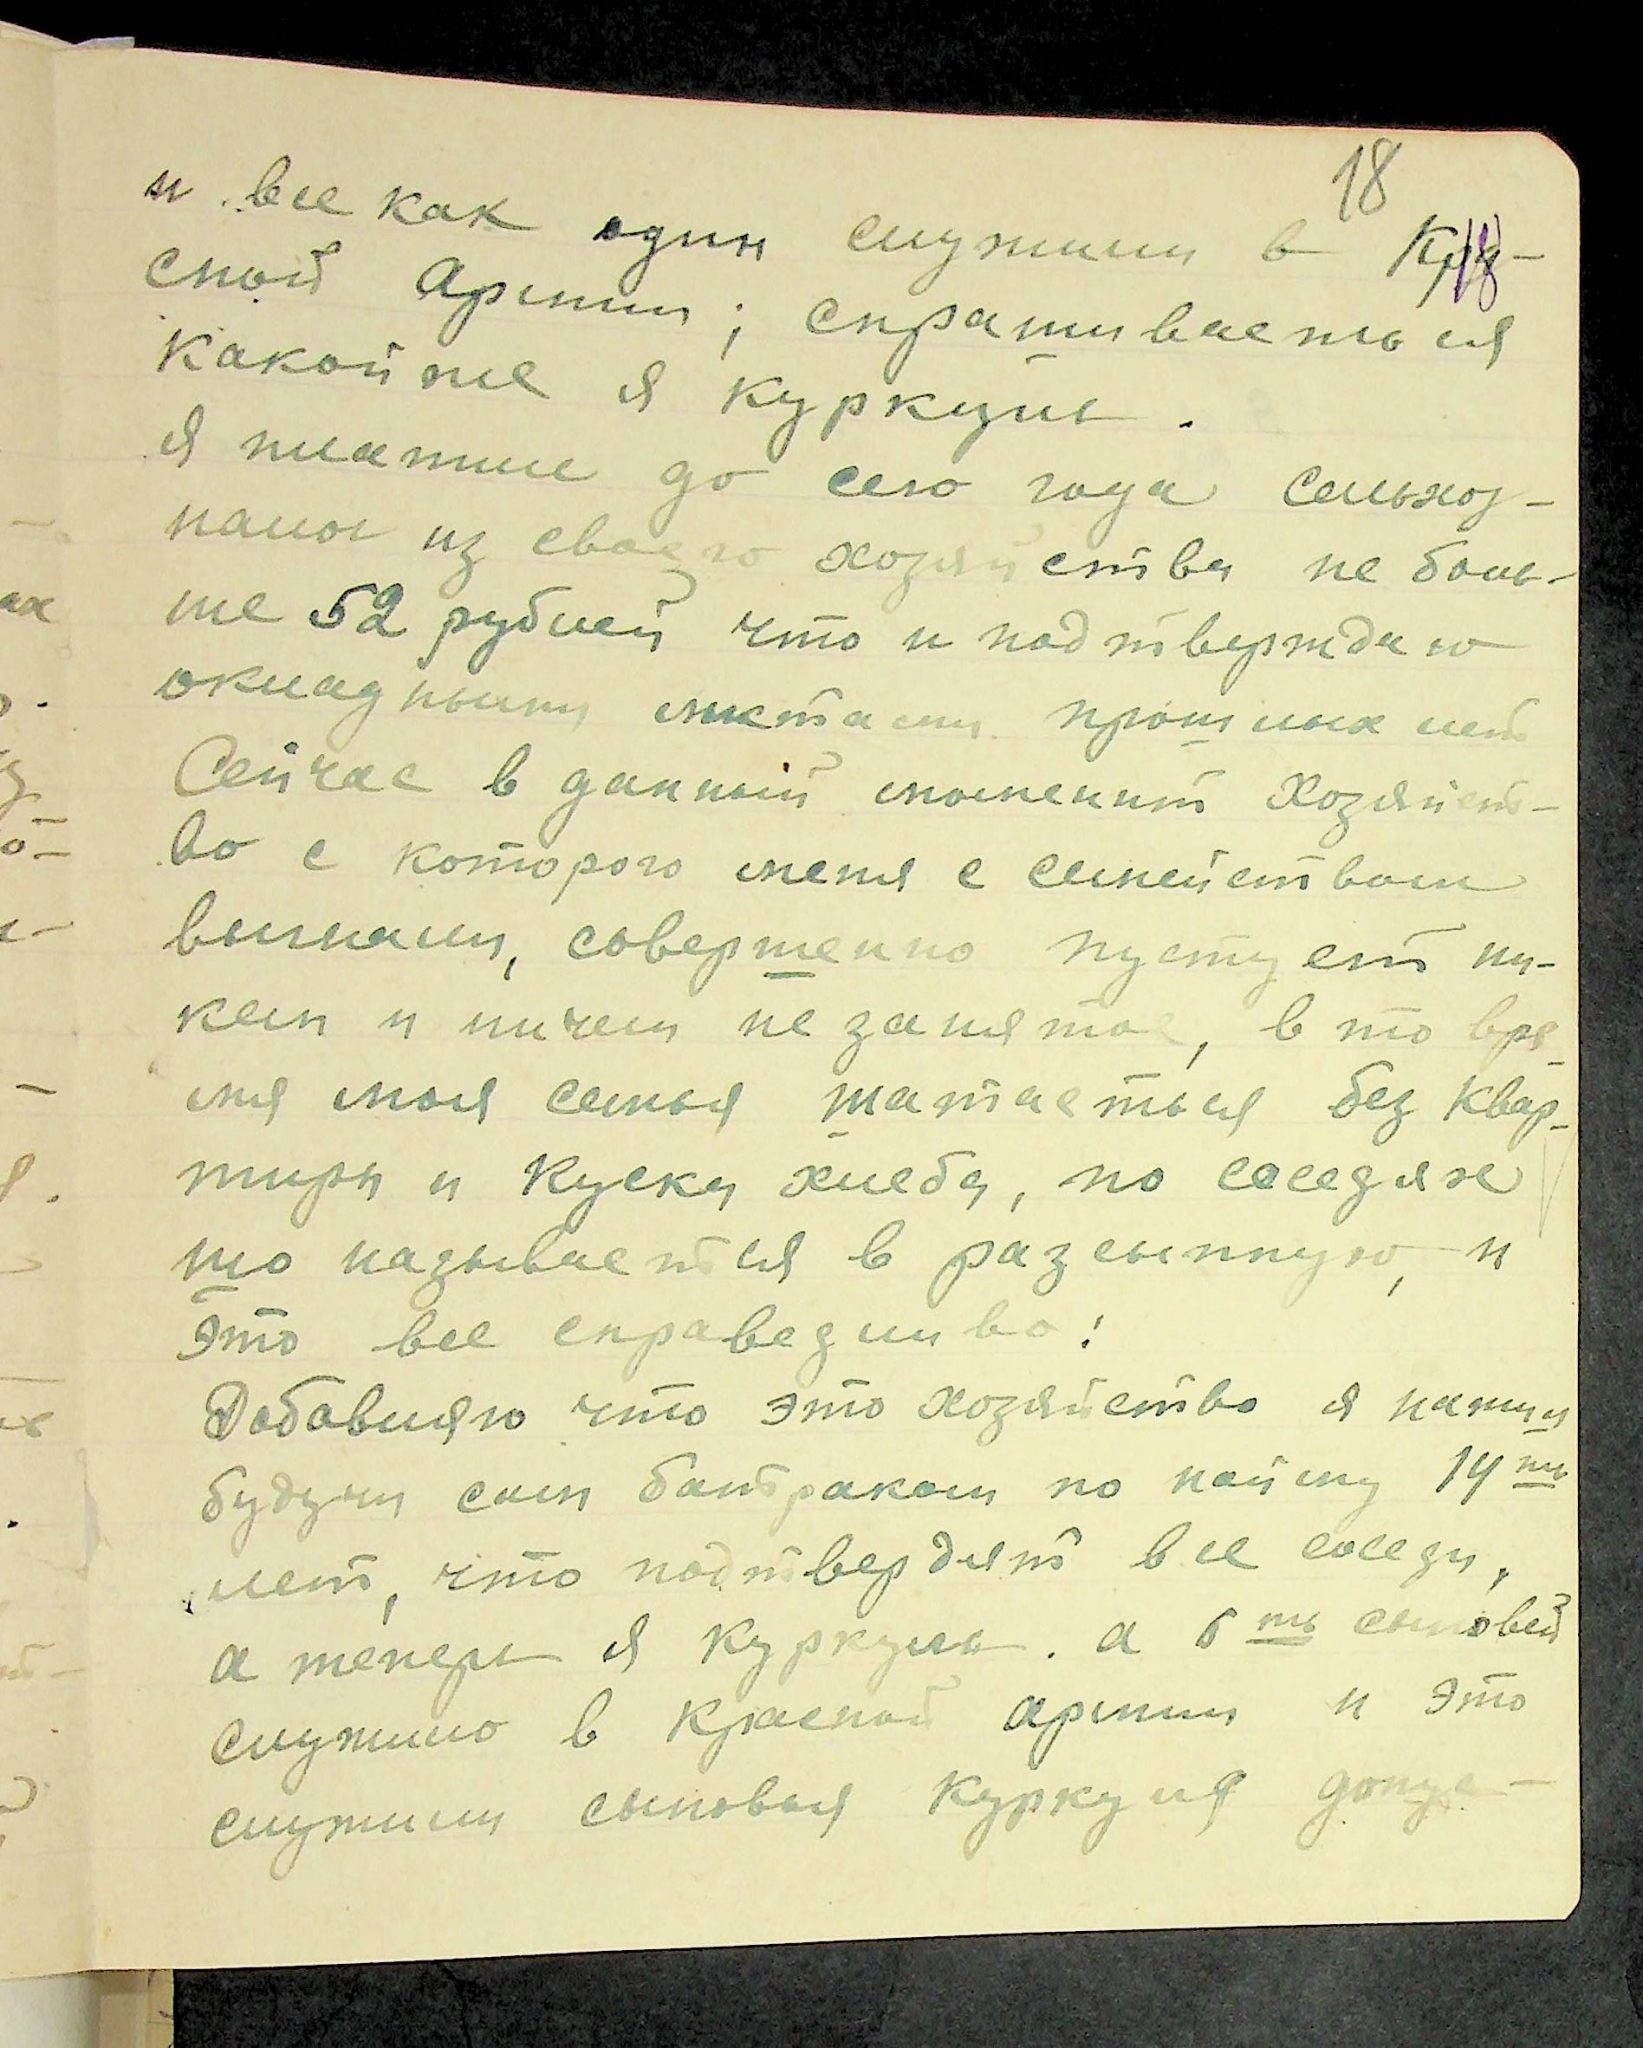 18
и все как один служили в Кра-
18
сной Армии; спрашиваеться
какой же я куркуль.
я платил до сего года сельхоз-
налог из своего хозяйства не боль-
ше 52 рублей что и подтверждаю
окладными листами прошлых лет
Сейчас в данный момент хозяйст-
во с которого меня с семейством
выгнали, совершенно пустует ни-
кем и ничем не занятое, в то вре-
мя моя семья шатаеться без квар-
тиры и куска хлеба, по соседях
що называется в разсыпную, и
это все справедливо!
Добавляю что это хозяйство я нажил
будучи сам батраком по найму 14ть
лет, что подтвердят все соседи,
а теперь я куркуль. а 5ть сыновей
служило в красной армии и это
служили сыновья куркуля допус-